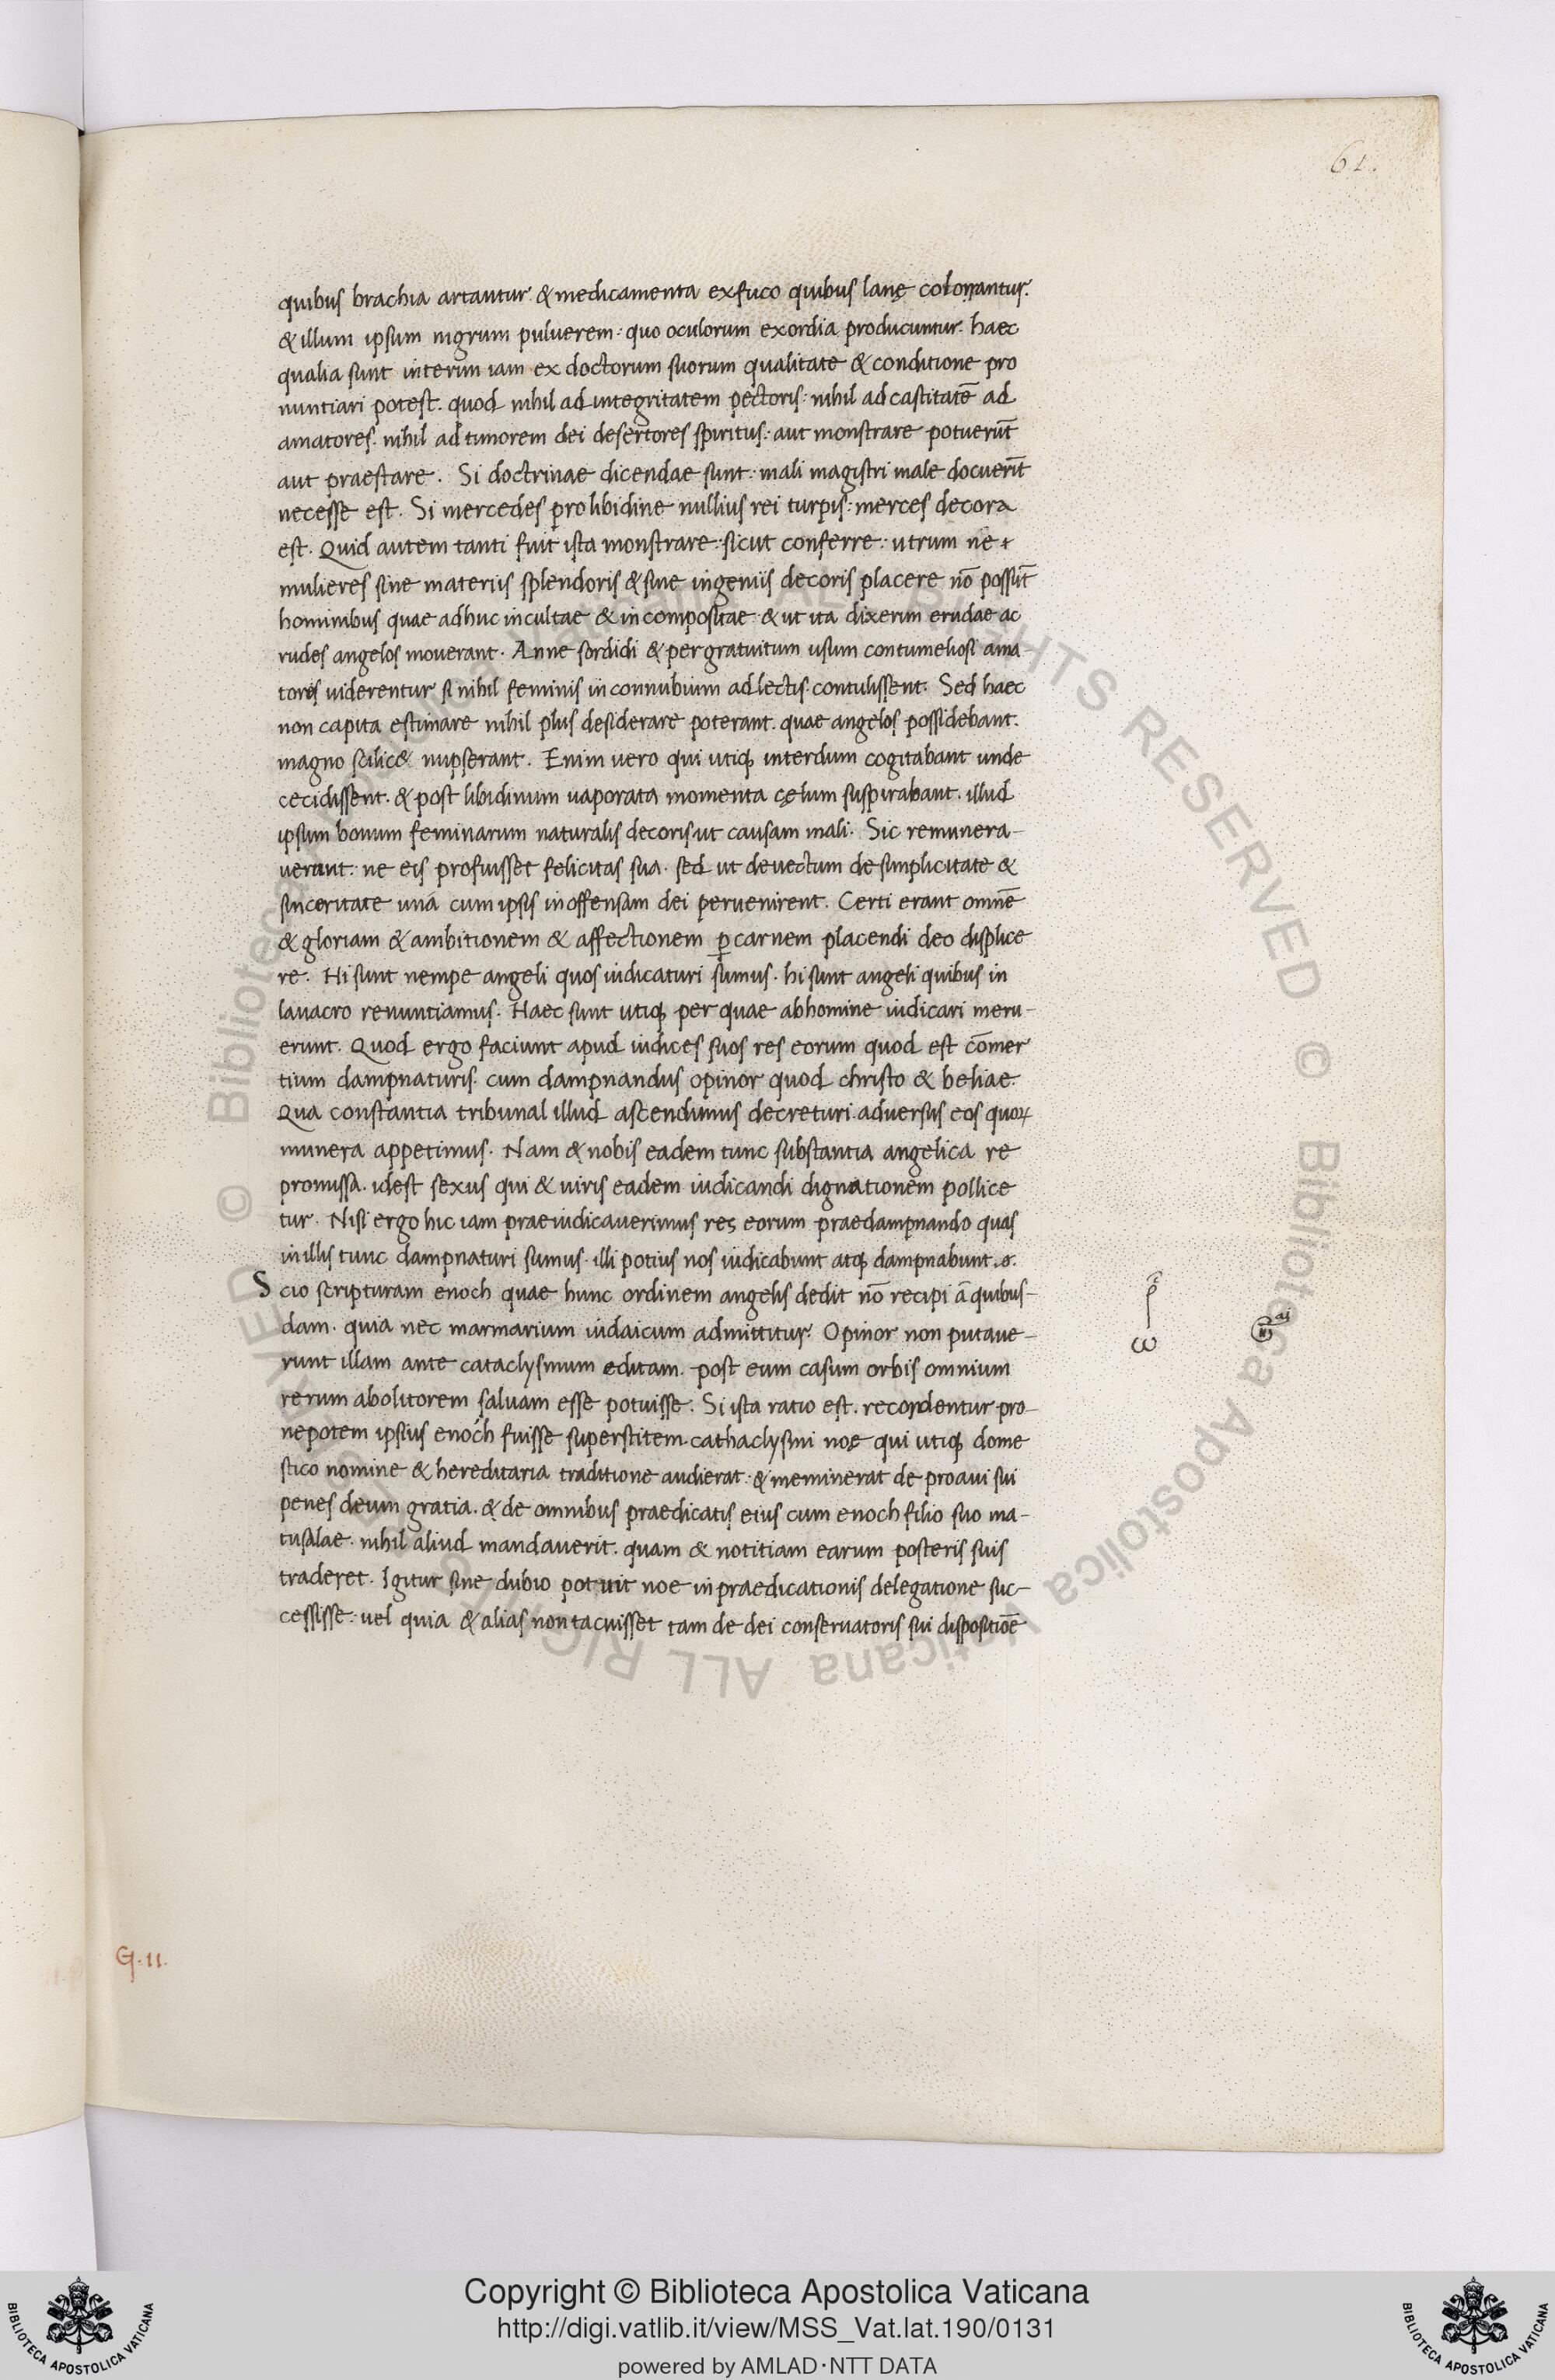 61.
quibus brachia artantur. & medicamenta exfuco quibus lanę colorantur.
& illum ipsum nigrum puluerem: quo oculorum exordia producuntur. haec
qualia sunt interim iam ex doctorum suorum qualitate & conditione pro
nuntiari potest. quod nihil ad integritatem pectoris: nihil ad castitatē ad
amatores. nihil ad timorem dei desertores spiritus: aut monstrare potuerūt
aut praestare. Si doctrinae dicendae sunt: mali magistri male docuerīt
necesse est. Si mercedes pro libidine nullius rei turpis: merces decora
est. Quid autem tanti fuit ista monstrare: sicut conferre: utrum ne
mulieres sine materiis splendoris & sine ingeniis decoris placere nō possūt
hominibus quae adhuc incultae & incompositae & ut ita dixerim erudae ac
rudes angelos mouerant. Anne sordidi & per gratuitum usum contumeliosi ama-
tores uiderentur si nihil feminis in connubium adlectis contulissent. Sed haec
non capita estimare nihil plus desiderare poterant. quae angelos possidebant.
magno scilic& nupserant. Enim uero qui utiq; interdum cogitabant unde
cecidissent. & post libidinum uaporata momenta cęlum suspirabant. illud
ipsum bonum feminarum naturalis decoris ut causam mali. Sic remunera-
uerunt: ne eis profuisset felicitas sua. sed ut deuectum de simplicitate &
sinceritate unā cum ipsis in offensam dei peruenirent. Certi erant omnē
& gloriam & ambitionem & affectionem ꝑ carnem placendi deo displice
re. Hi sunt nempe angeli quos iudicaturi sumus. hi sunt angeli quibus in
lauacro renuntiamus. Haec sunt utiq; per quae ab homine iudicari meru-
erunt. Quod ergo faciunt apud iudices suos res eorum quod est cōmer
tium dampnaturis cum dampnandus opinor quod christo & beliae.
Qua constantia tribunal illud ascendimus decreturi aduersus eos quoꝝ
munera appetimus. Nam & nobis eadem tunc substantia angelica re
promissa. idest sexus qui & uiris eadem iudicandi dignationem pollice
tur. Nisi ergo hic iam praeiudicauerimus res eorum praedampnando quas
in illis tunc dampnaturi sumus. illi potius nos iudicabunt atq; dampnabunt.
Scio scripturam enoch quae hunc ordinem angelis dedit nō recipi ā quibus-
dam. quia nec marmarium iudaicum admittitur. Opinor non putaue-
runt illam ante cataclysmum editam. post eum casum orbis omnium
rerum abolitorem saluam esse potuisse. Si ista ratio est. recordentur pro-
nepotem ipsius enoch fuisse superstitem cathaclysmi noę qui utiq; dome
stico nomine & hereditaria traditione audierat. & meminerat de proaui sui
penes deum gratia. & de omnibus praedicatis eius cum enoch filio suo ma-
tusalae. nihil aliud mandauerit. quam & notitiam earum posteris suis
traderet. Igitur sine dubio potuit noe in praedicationis delegatione suc-
cessisse: uel quia & alias non tacuisset tam de dei conseruatoris sui dispositiōe
G. 11.
© Biblioteca Apostolica Vaticana ALL RIGHTS RESERVED
Copyright © Biblioteca Apostolica Vaticana
http://digi.vatlib.it/view/MSS_Vat.lat.190/0131
powered by AMLAD·NTT DATA
BIBLIOTECA APOSTOLICA VATICANA
BIBLIOTECA APOSTOLICA VATICANA